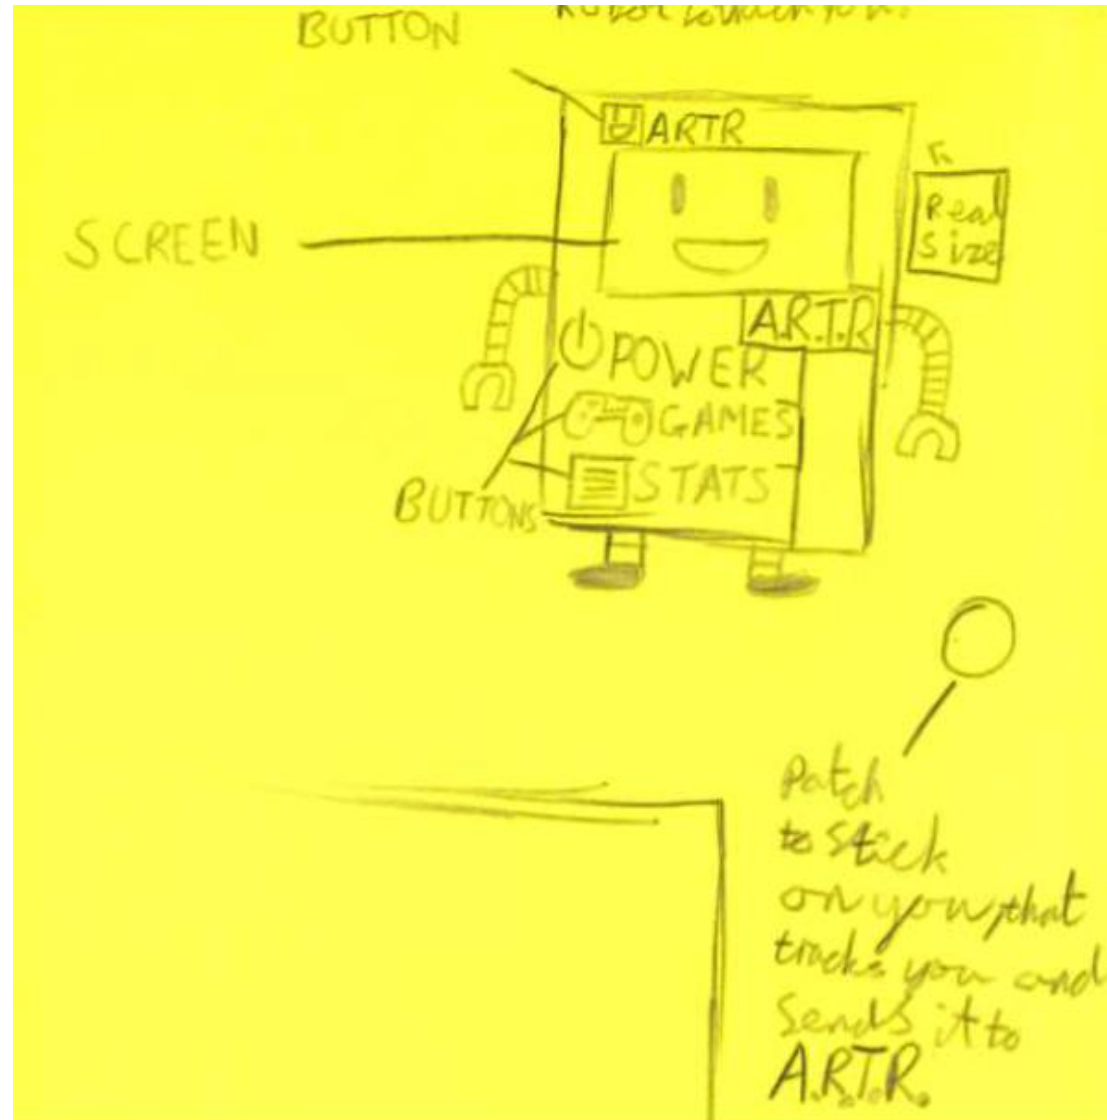 BUTTON
ARTR
Real
Size
SCREEN
A.R.T.R
POWER
GAMES
STATS
BUTTONS
Patch
to stick
on you, that
tracks you and
sends it to
A.R.T.R.